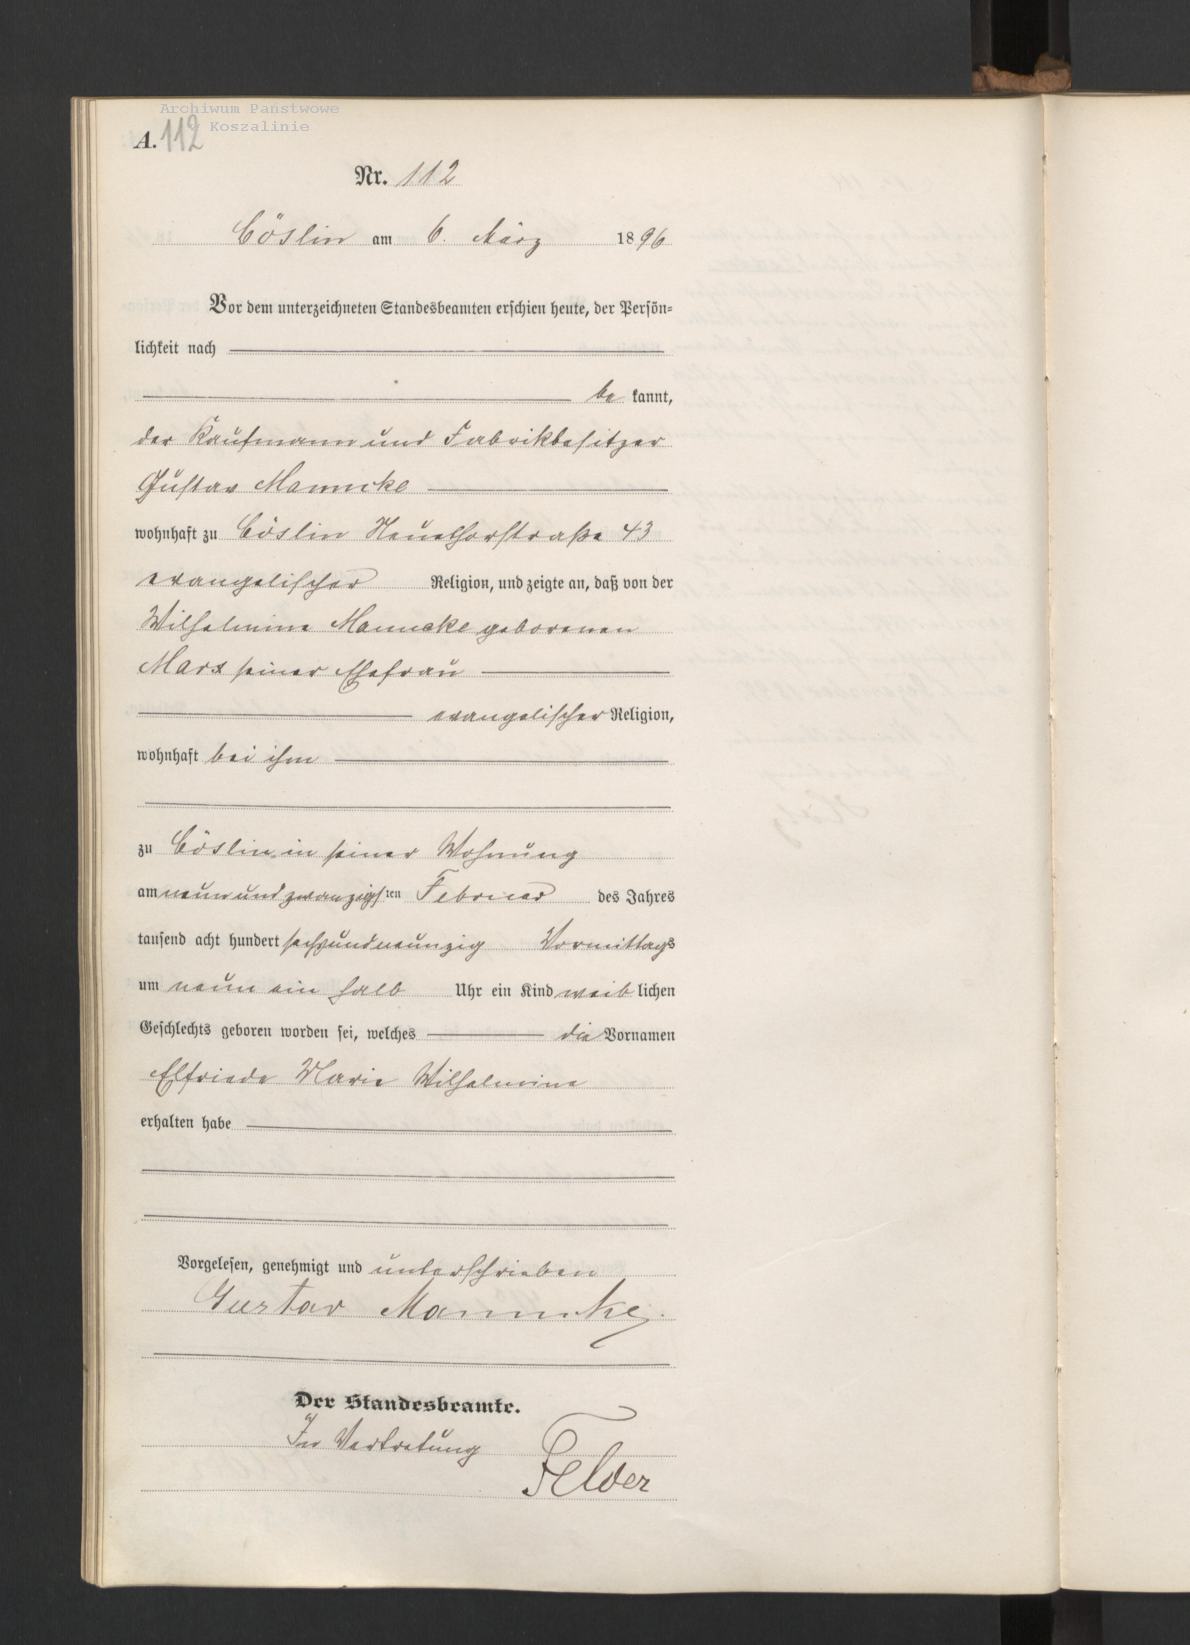 Archiwum Państwowe
w Koszalinie
A. 112
Nr. 112
Cöslin am 6. März 1896
Vor dem unterzeichneten Standesbeamten erschien heute, der Persön-
lichkeit nach
be kannt,
der Kaufmann und Fabrikbesitzer
Gustav Manncke
wohnhaft zu Cöslin Neuethorstraße 43
evangelischer Religion, und zeigte an, daß von der
Wilhelmine Manncke geborenen
Marx seiner Ehefrau
evangelischer Religion,
wohnhaft bei ihm
zu Cöslin in seiner Wohnung
am neunundzwanzigsten Februar des Jahres
tausend acht hundert sechsundneunzig Vormittags
um neun ein halb Uhr ein Kind weib lichen
Geschlechts geboren worden sei, welches die Vornamen
Elfriede Marie Wilhelmine
erhalten habe
Vorgelesen, genehmigt und unterschrieben
Gustav Manncke.
Der Standesbeamte.
In Vertretung
Felder